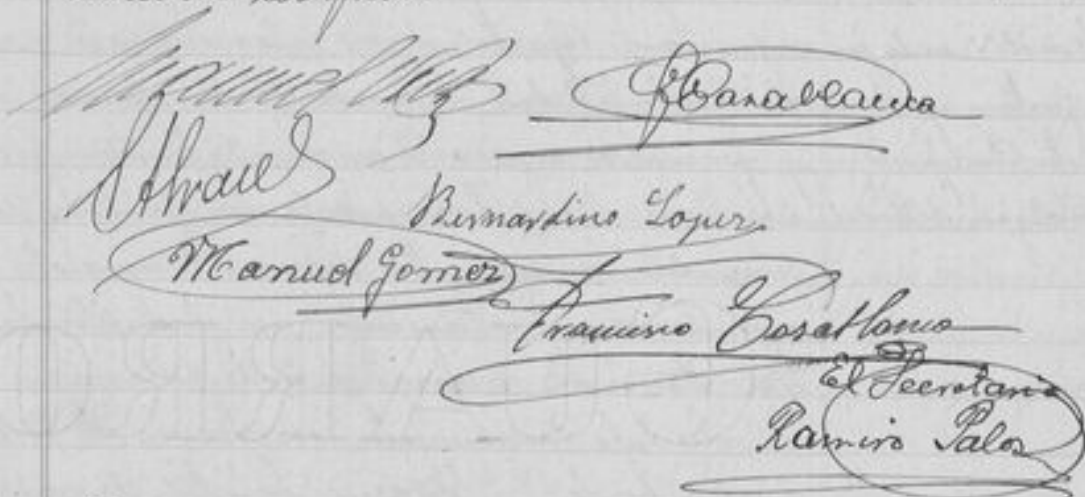 Manuel
J Casablanca
Alvarez
Bernardino Lopez
Manuel Gomez
Francisco Casablanca
El Secretario
Ramiro Palos